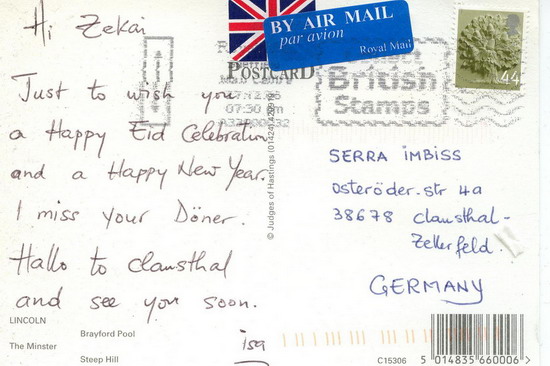 Hi Zekai
Just to wish you
a Happy Eid Celebration
and a Happy New Year.
I miss your Döner.
Hallo to Clausthal
and see you soon.
isa
LINCOLN
Brayford Pool
The Minster
Steep Hill
BY AIR MAIL
par avion
Royal Mail
POSTCARD
British
Stamps
07:30 pm
44
© Judges of Hastings (01424)
SERRA İMBİSS
Osteröder.str 4a
38678 Clausthal-
Zellerfeld.
GERMANY
C15306
5 014835 660006